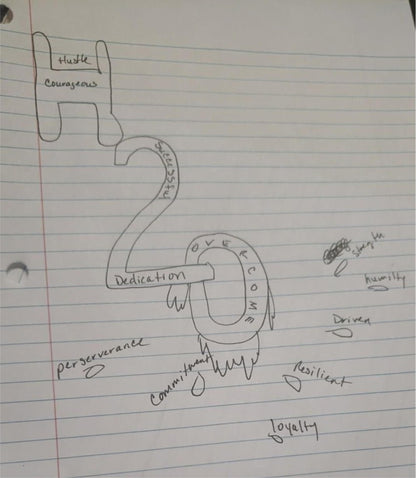 Hustle
Courageous
Successful
2
Dedication
OVERCOME
strength
humilty
Driven
perserverance
Commitment
Resilient
loyalty